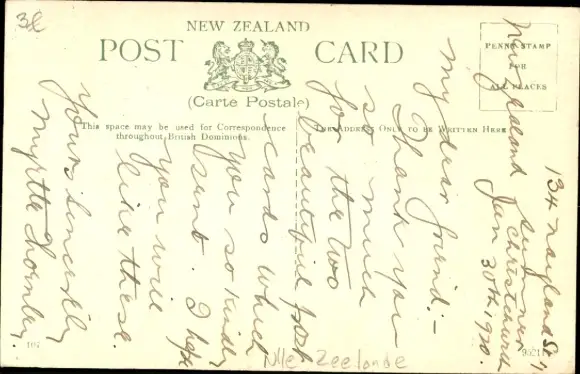 3£
NEW ZEALAND
POST CARD
(Carte Postale)
This space may be used for Correspondence
throughout British Dominions.
The Address Only to be Written Here
PENNY STAMP
FOR
ALL PLACES
134 Nayland St,
Sumner
Christchurch
New Zealand
Jan 30th 1920.
My dear friend:-
Thank you
so much
for the two
beautiful post
cards which
you so kindly
sent. I hope
you will
like these.
Yours sincerely
Myrtle Thornley.
107
Nlle Zeelande